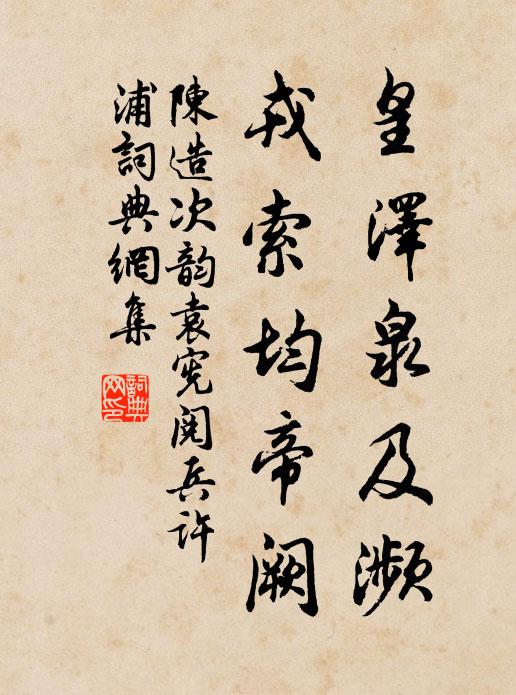 皇澤泉及瀕
戎索均帝闕
陳造次韵袁宪閱兵許
浦詞典網集
詞典
网印